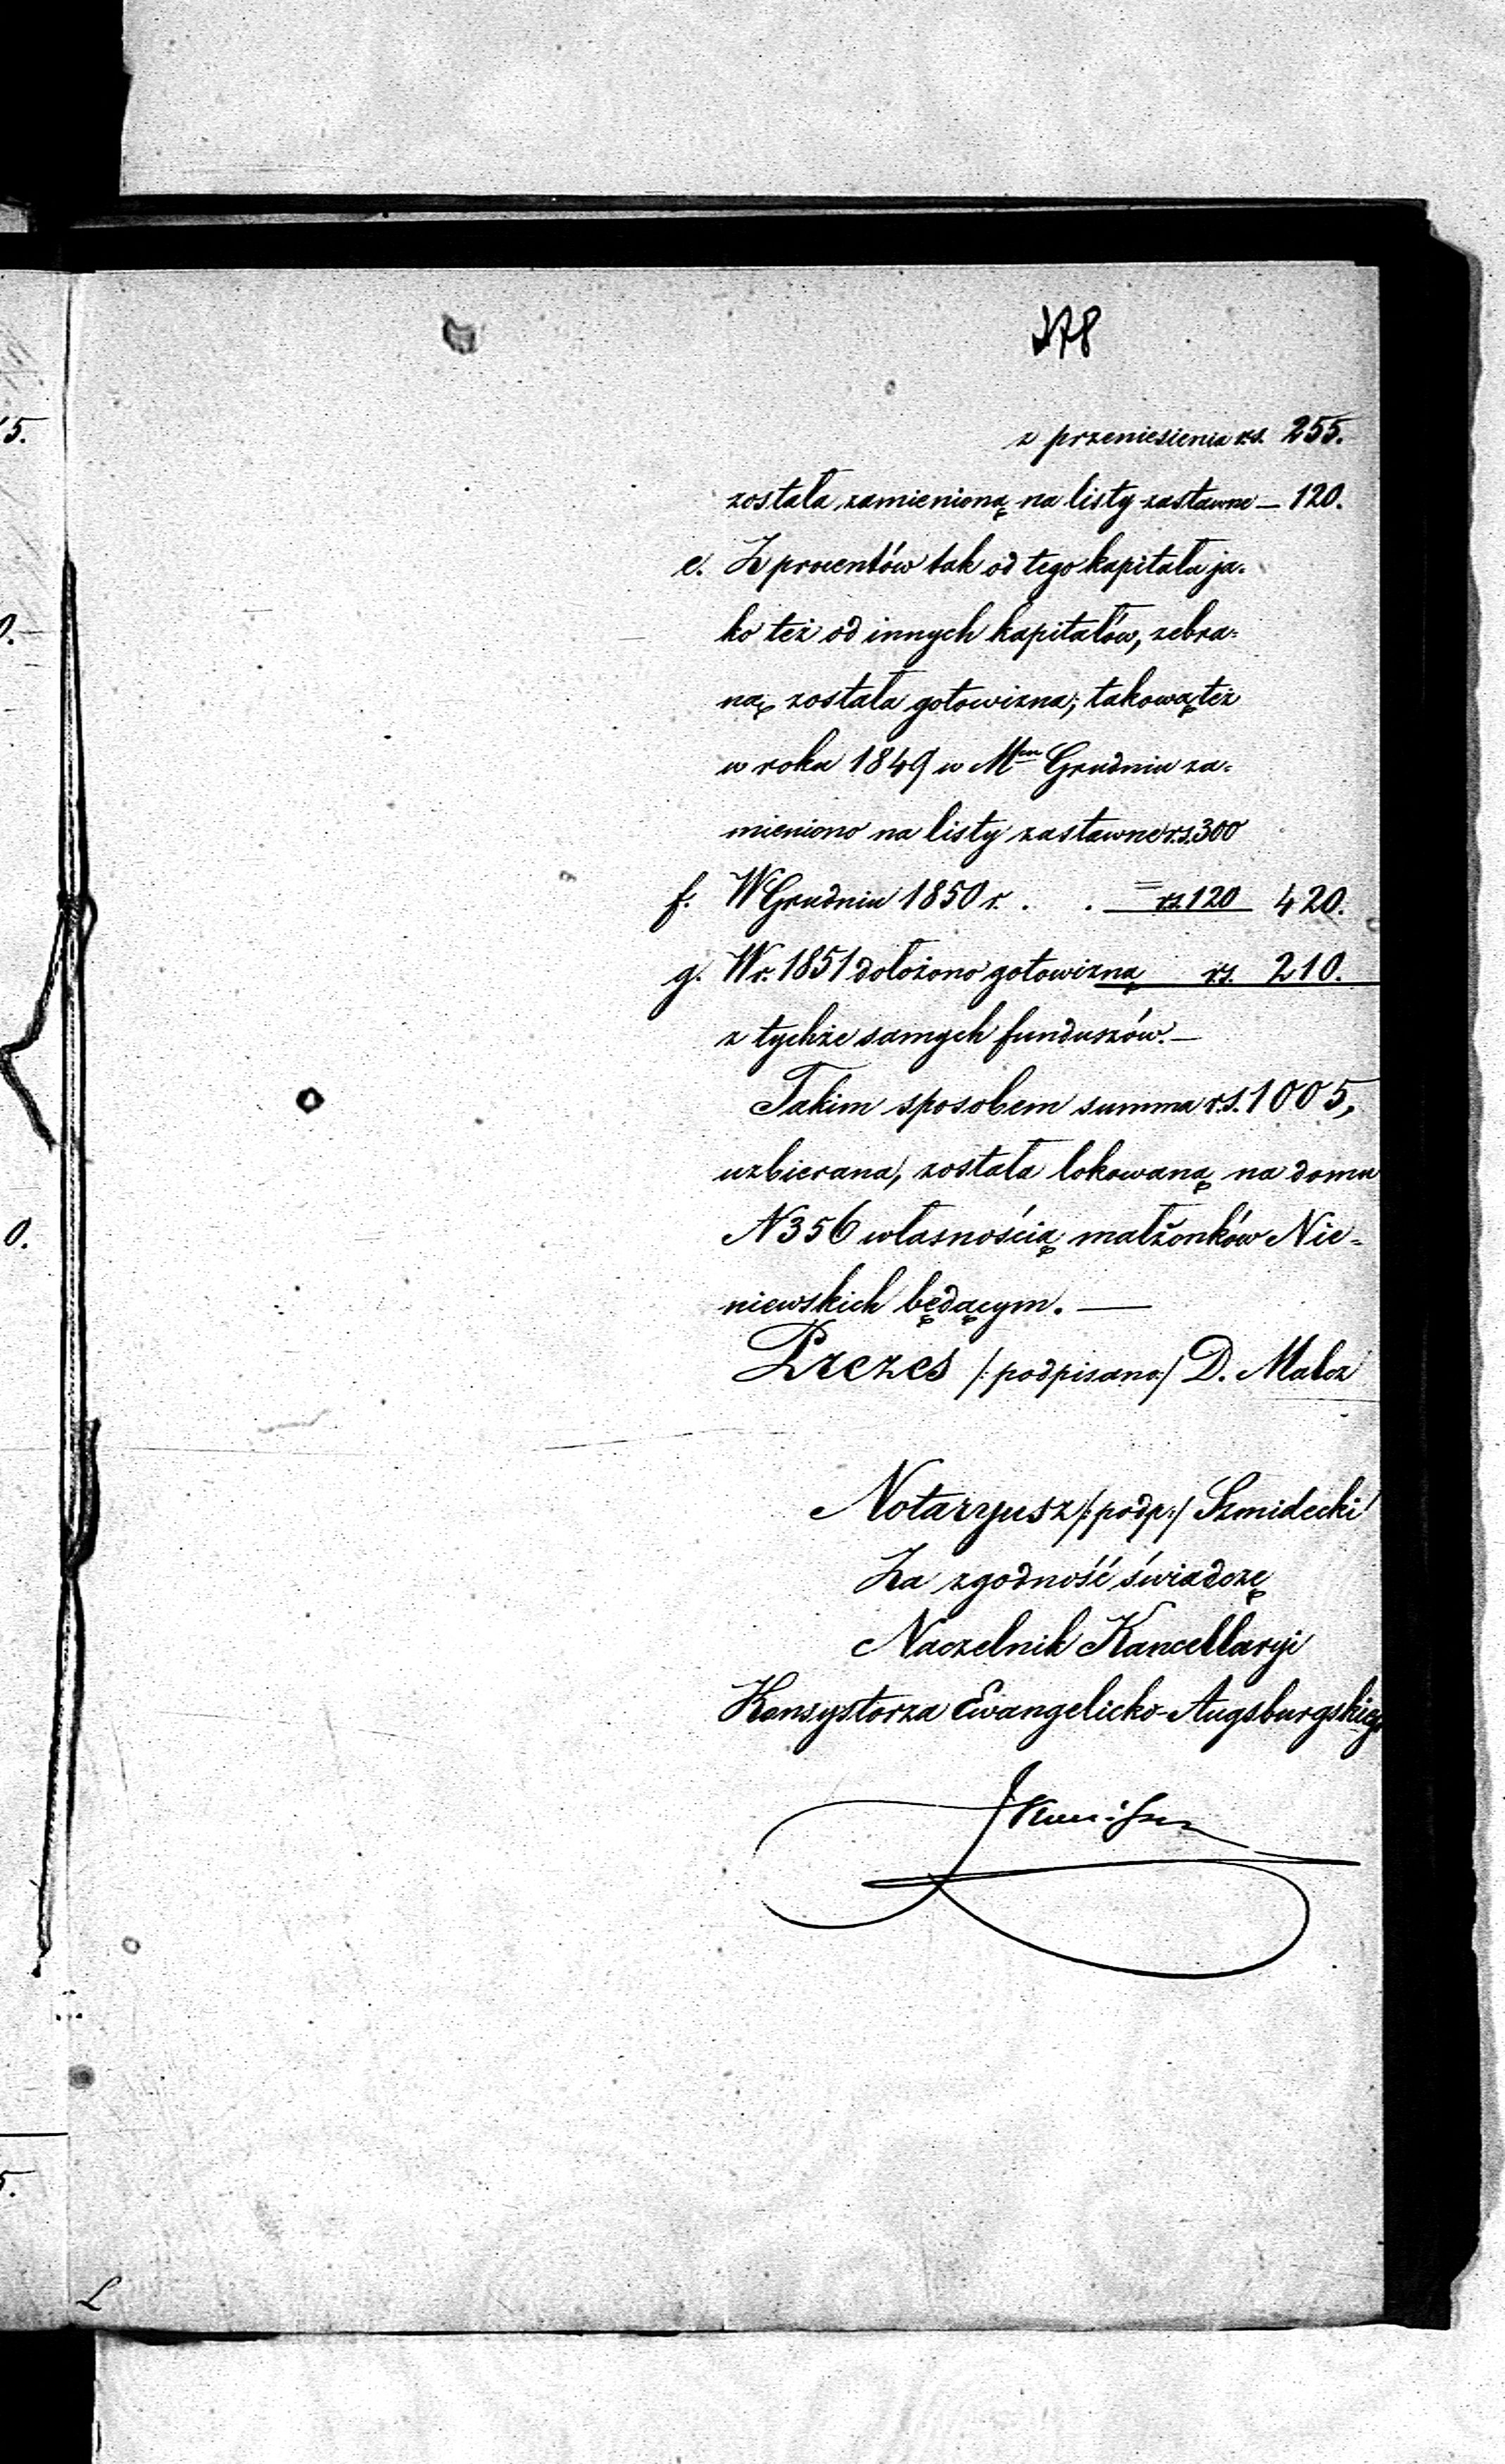 378
z przeniesienia rs. 255.
została zamienioną na listy zastawne — 120.
e. Z procentów tak od tego kapitału ja-
ko też od innych kapitałów, zebra-
ną została gotowizna; takową też
w roku 1849 w Mcu Grudniu za-
mieniono na listy zastawne r.s. 300
f. W Grudniu 1850 r. . . rs. 120 420.
g. W r. 1851 dołożono gotowizną rs. 210.
z tychże samych funduszów. —
Takim sposobem summa r.s. 1005,
uzbierana, została lokowaną na domu
N 356 własnością małżonków Nie-
niewskich będącym. —
Prezes /:podpisano:/ D. Malcz
Notaryusz /:podp:/ Szmidecki
Za zgodność świadczę
Naczelnik Kancellaryi
Konsystorza Ewangelicko-Augsburgskiego